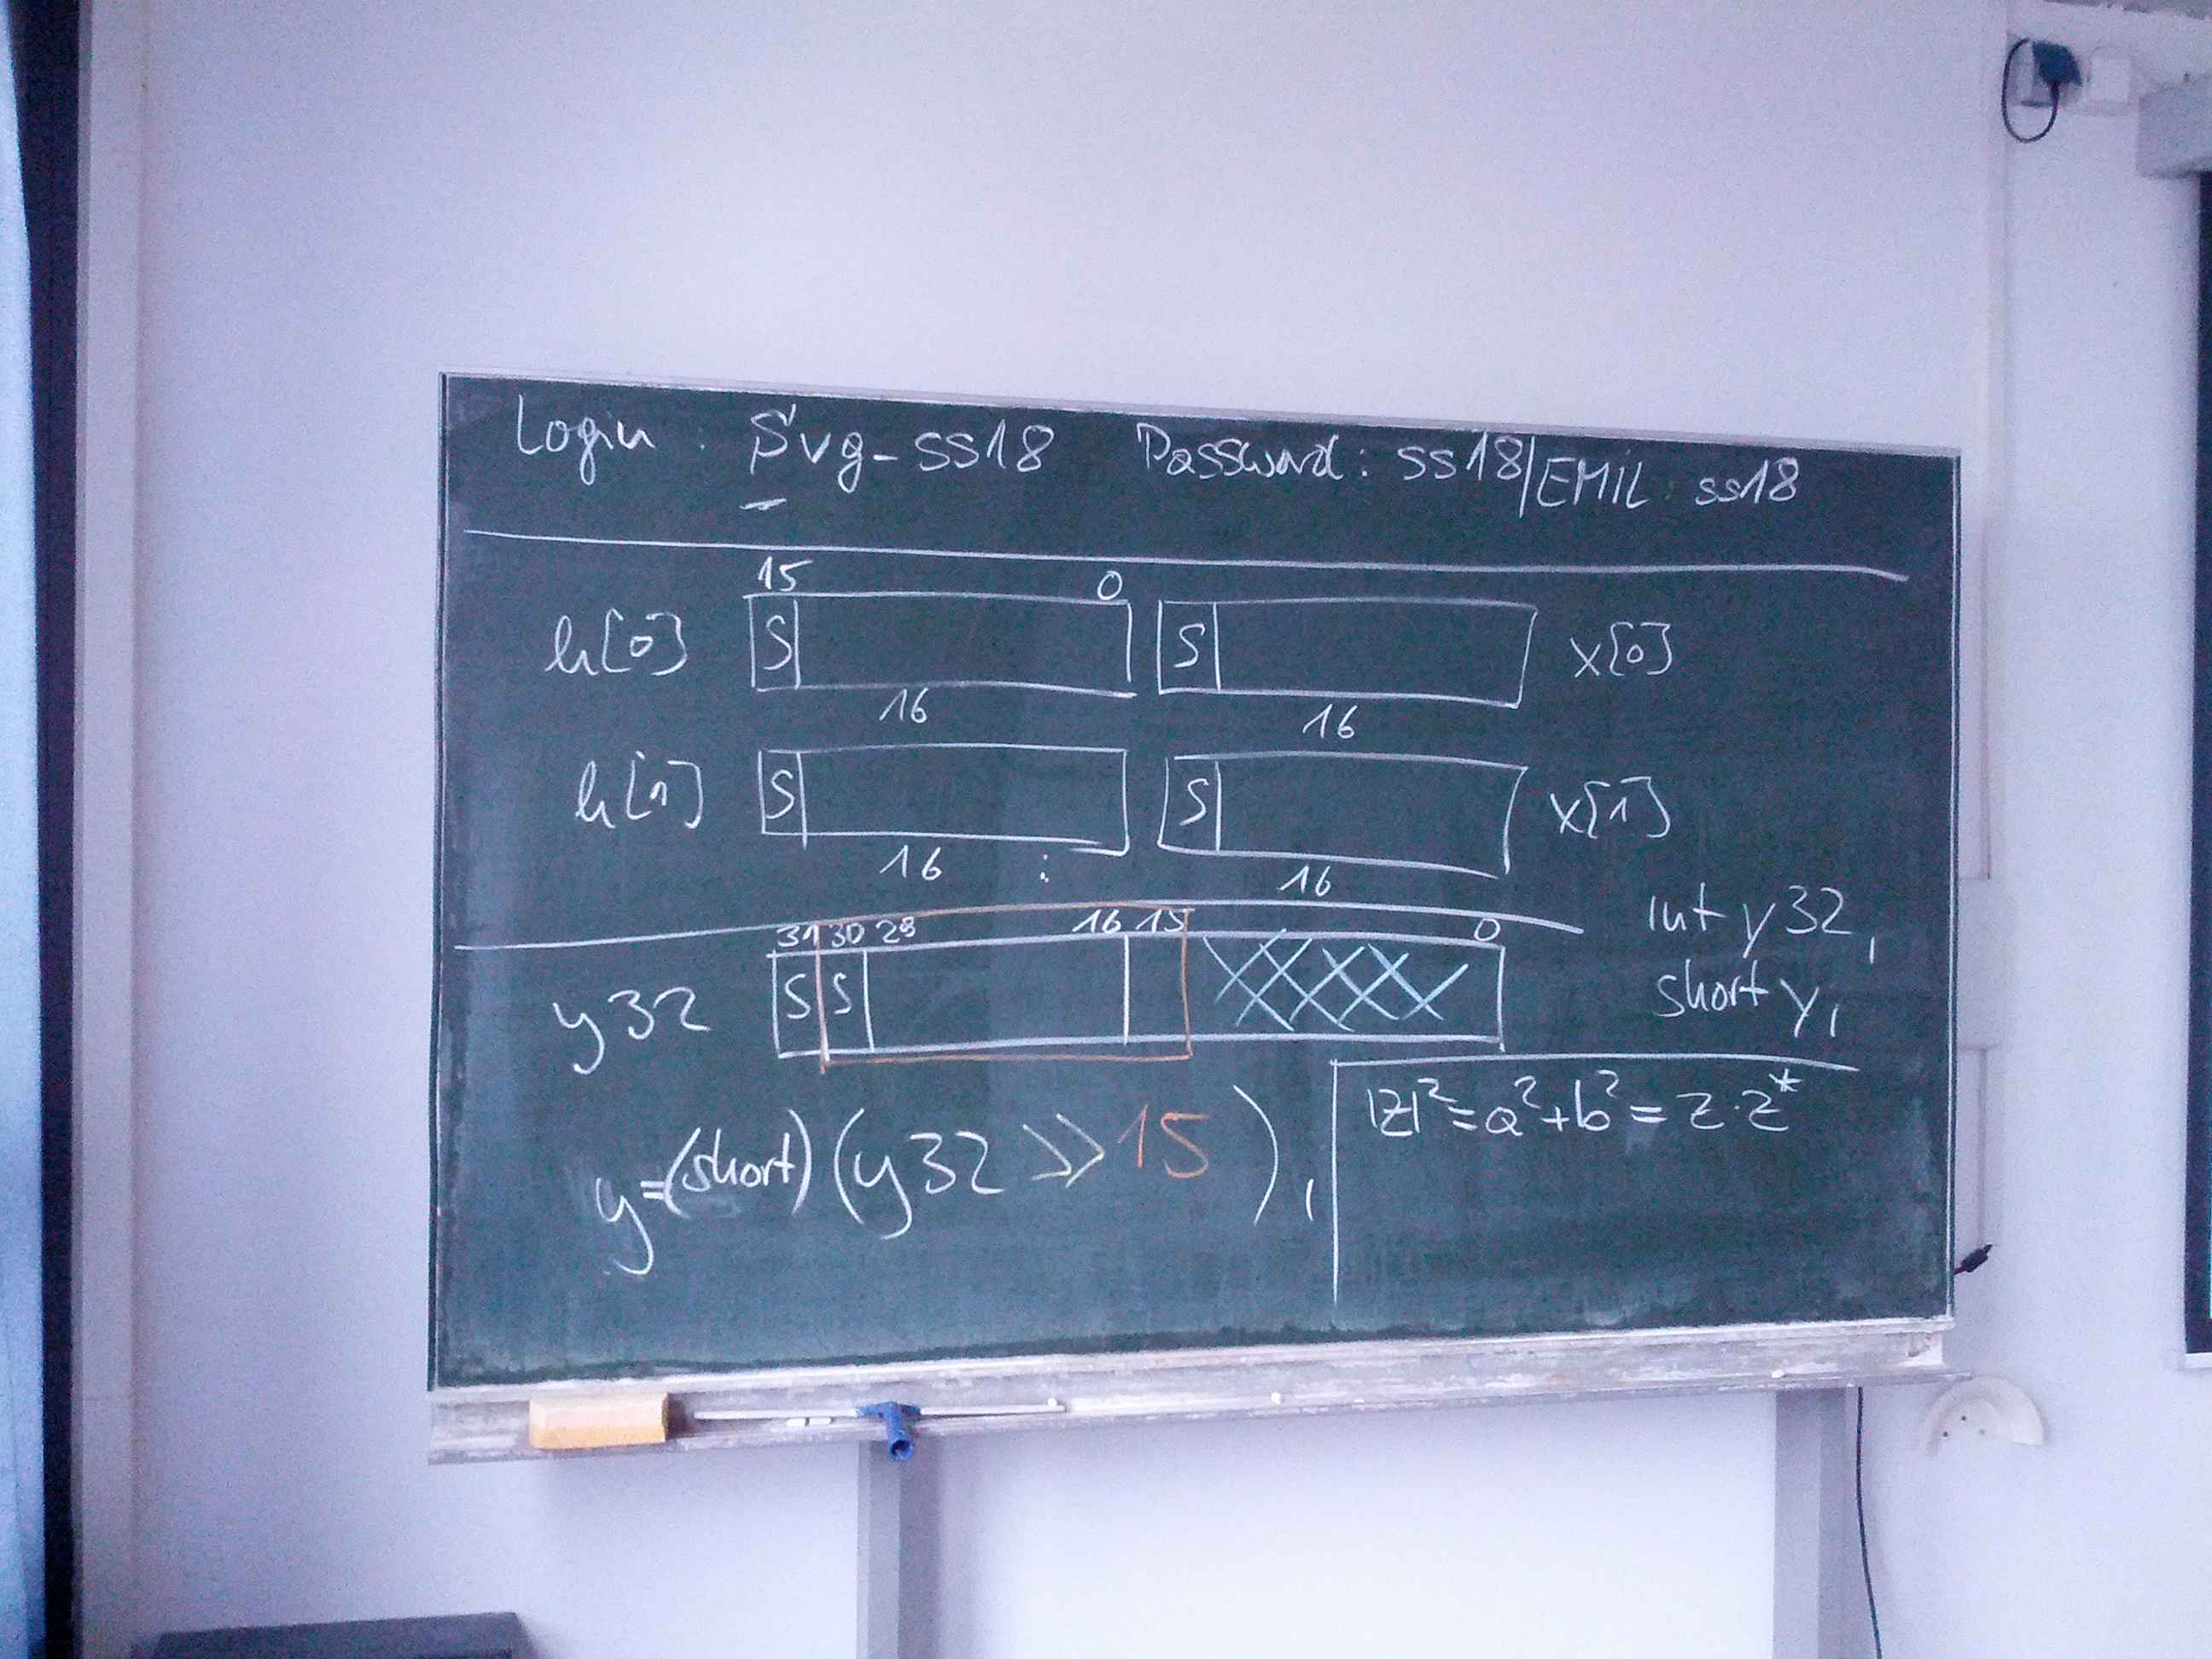 Login : Svg-ss18 Password: ss18/EMIL: ss18
15 0
h[0] S S x[0]
16 16
h[1] S S x[1]
16 : 16
31 30 29 16 15 0
int y32,
y32 S S
short y,
|z|²=a²+b²=z·z*
y=(short)(y32>>15),